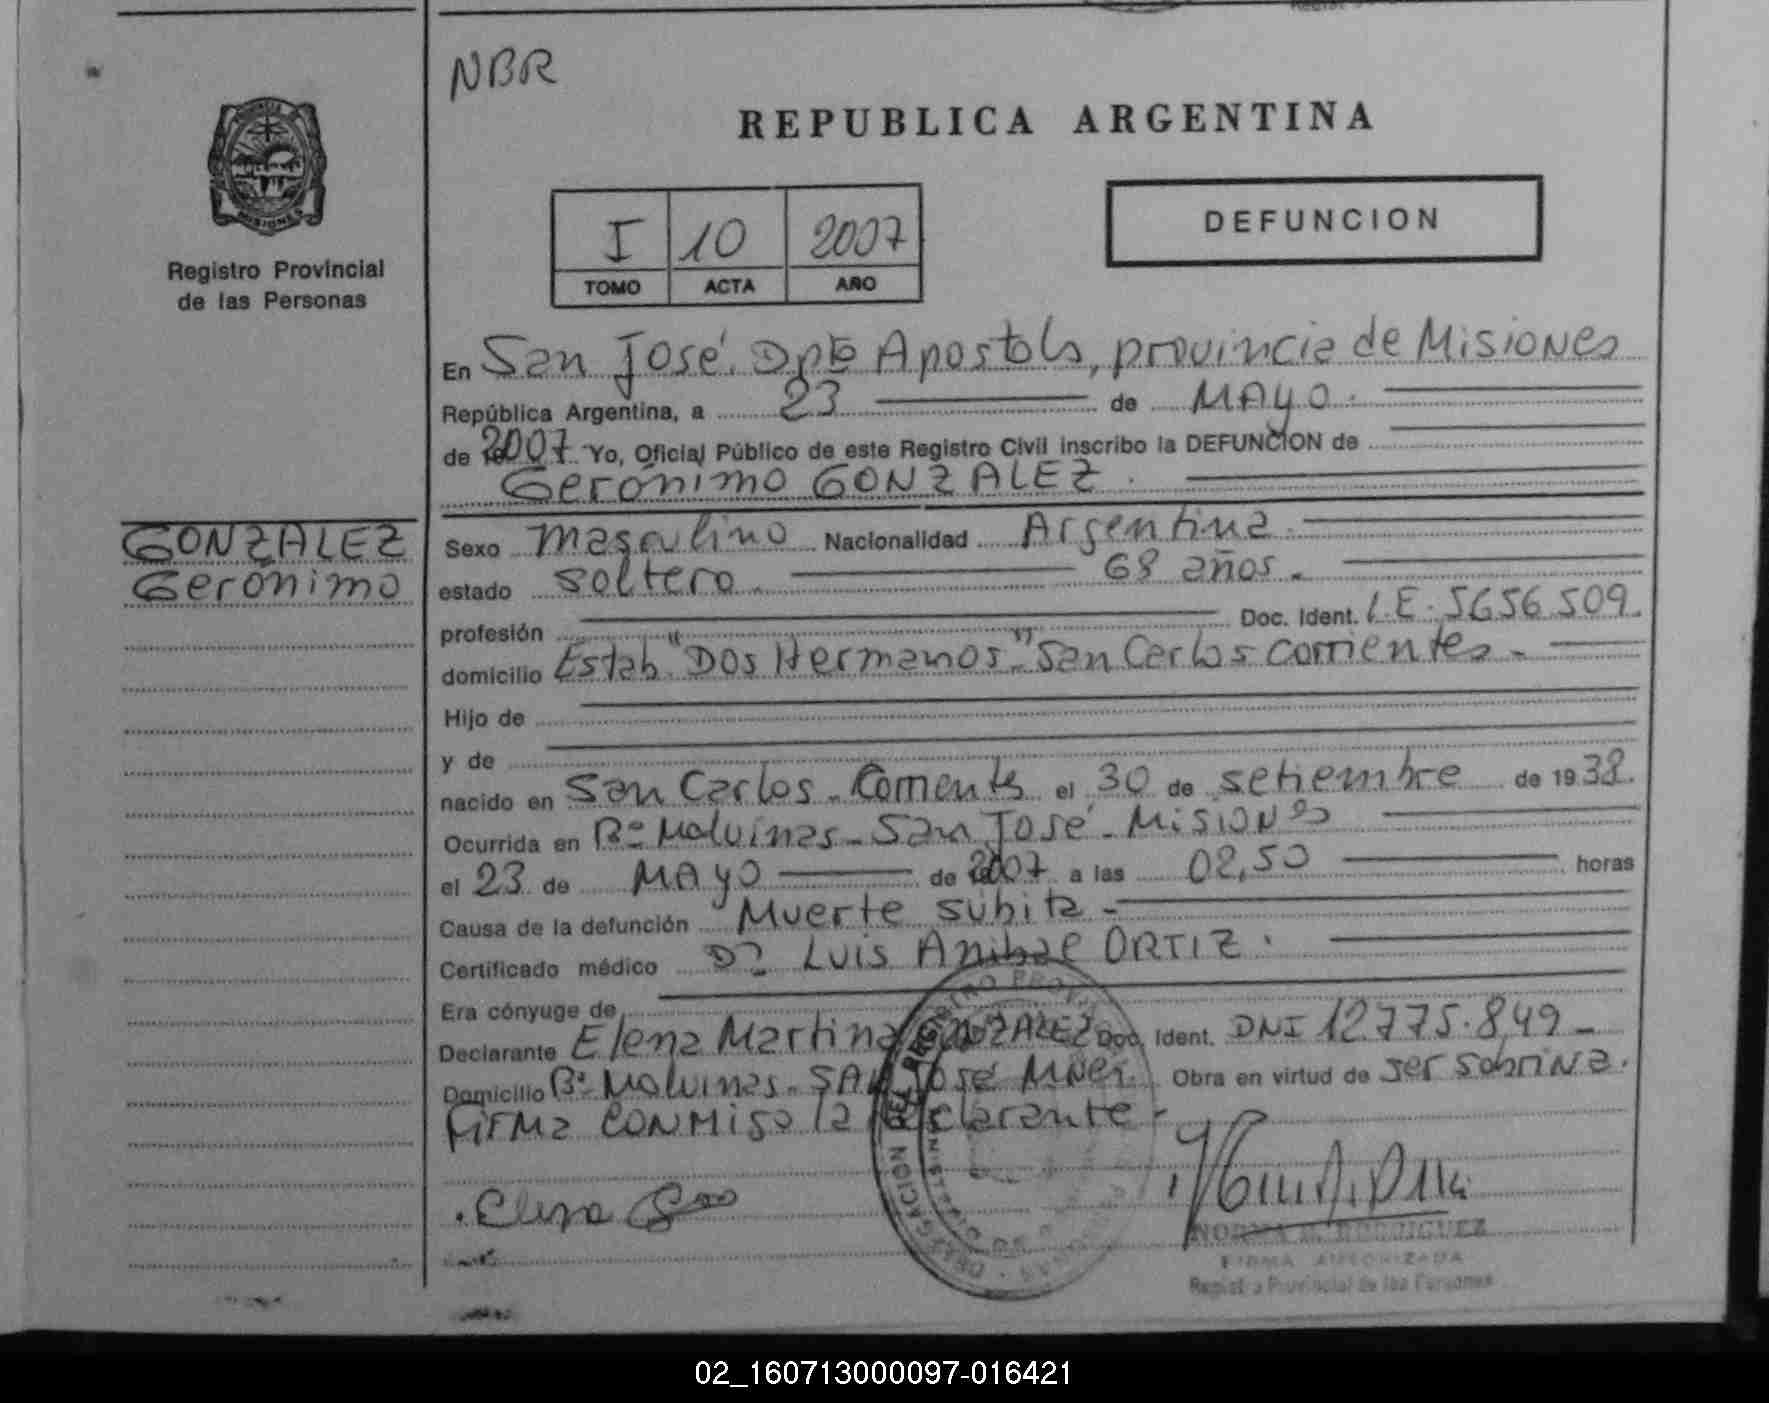 NBR
REPUBLICA ARGENTINA
PROVINCIA
MISIONES
Registro Provincial
de las Personas
I 10 2007
TOMO ACTA AÑO
DEFUNCION
En San José. Dpto Apostoles, provincia de Misiones
República Argentina, a 23 de MAYO.
de 2007 Yo, Oficial Público de este Registro Civil inscribo la DEFUNCION de
Gerónimo GONZALEZ.
GONZALEZ
Gerónimo
Sexo masculino Nacionalidad Argentina.
estado soltero. 68 años.
profesión Doc. Ident. L.E. 5656509.
domicilio Estab. "Dos Hermanos" San Carlos Corrientes -
Hijo de
y de
nacido en San Carlos - Corrientes el 30 de setiembre de 1938.
Ocurrida en Bº Malvinas - San José - Misiones
el 23 de MAYO de 2007 a las 02,50 horas
Causa de la defunción Muerte subita -
Certificado médico Dr. Luis Anibal ORTIZ.
Era cónyuge de
Declarante Elena Martina GONZALEZ Doc. Ident. DNI 12.775.849 -
Domicilio Bº Malvinas - SAN José Mnes. Obra en virtud de ser sobrina.
Firma conmigo la declarante -
Elena
NORMA B. RODRIGUEZ
FIRMA AUTORIZADA
Registro Provincial de las Personas
02_160713000097-016421